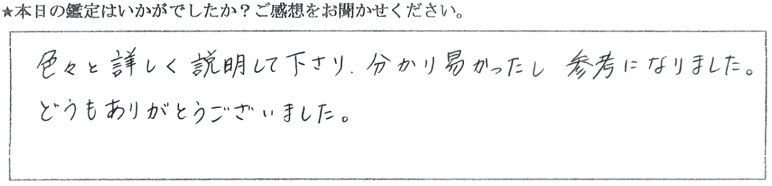 ★本日の鑑定はいかがでしたか？ご感想をお聞かせください。
色々と詳しく説明して下さり、分かり易かったし 参考になりました。
どうもありがとうございました。